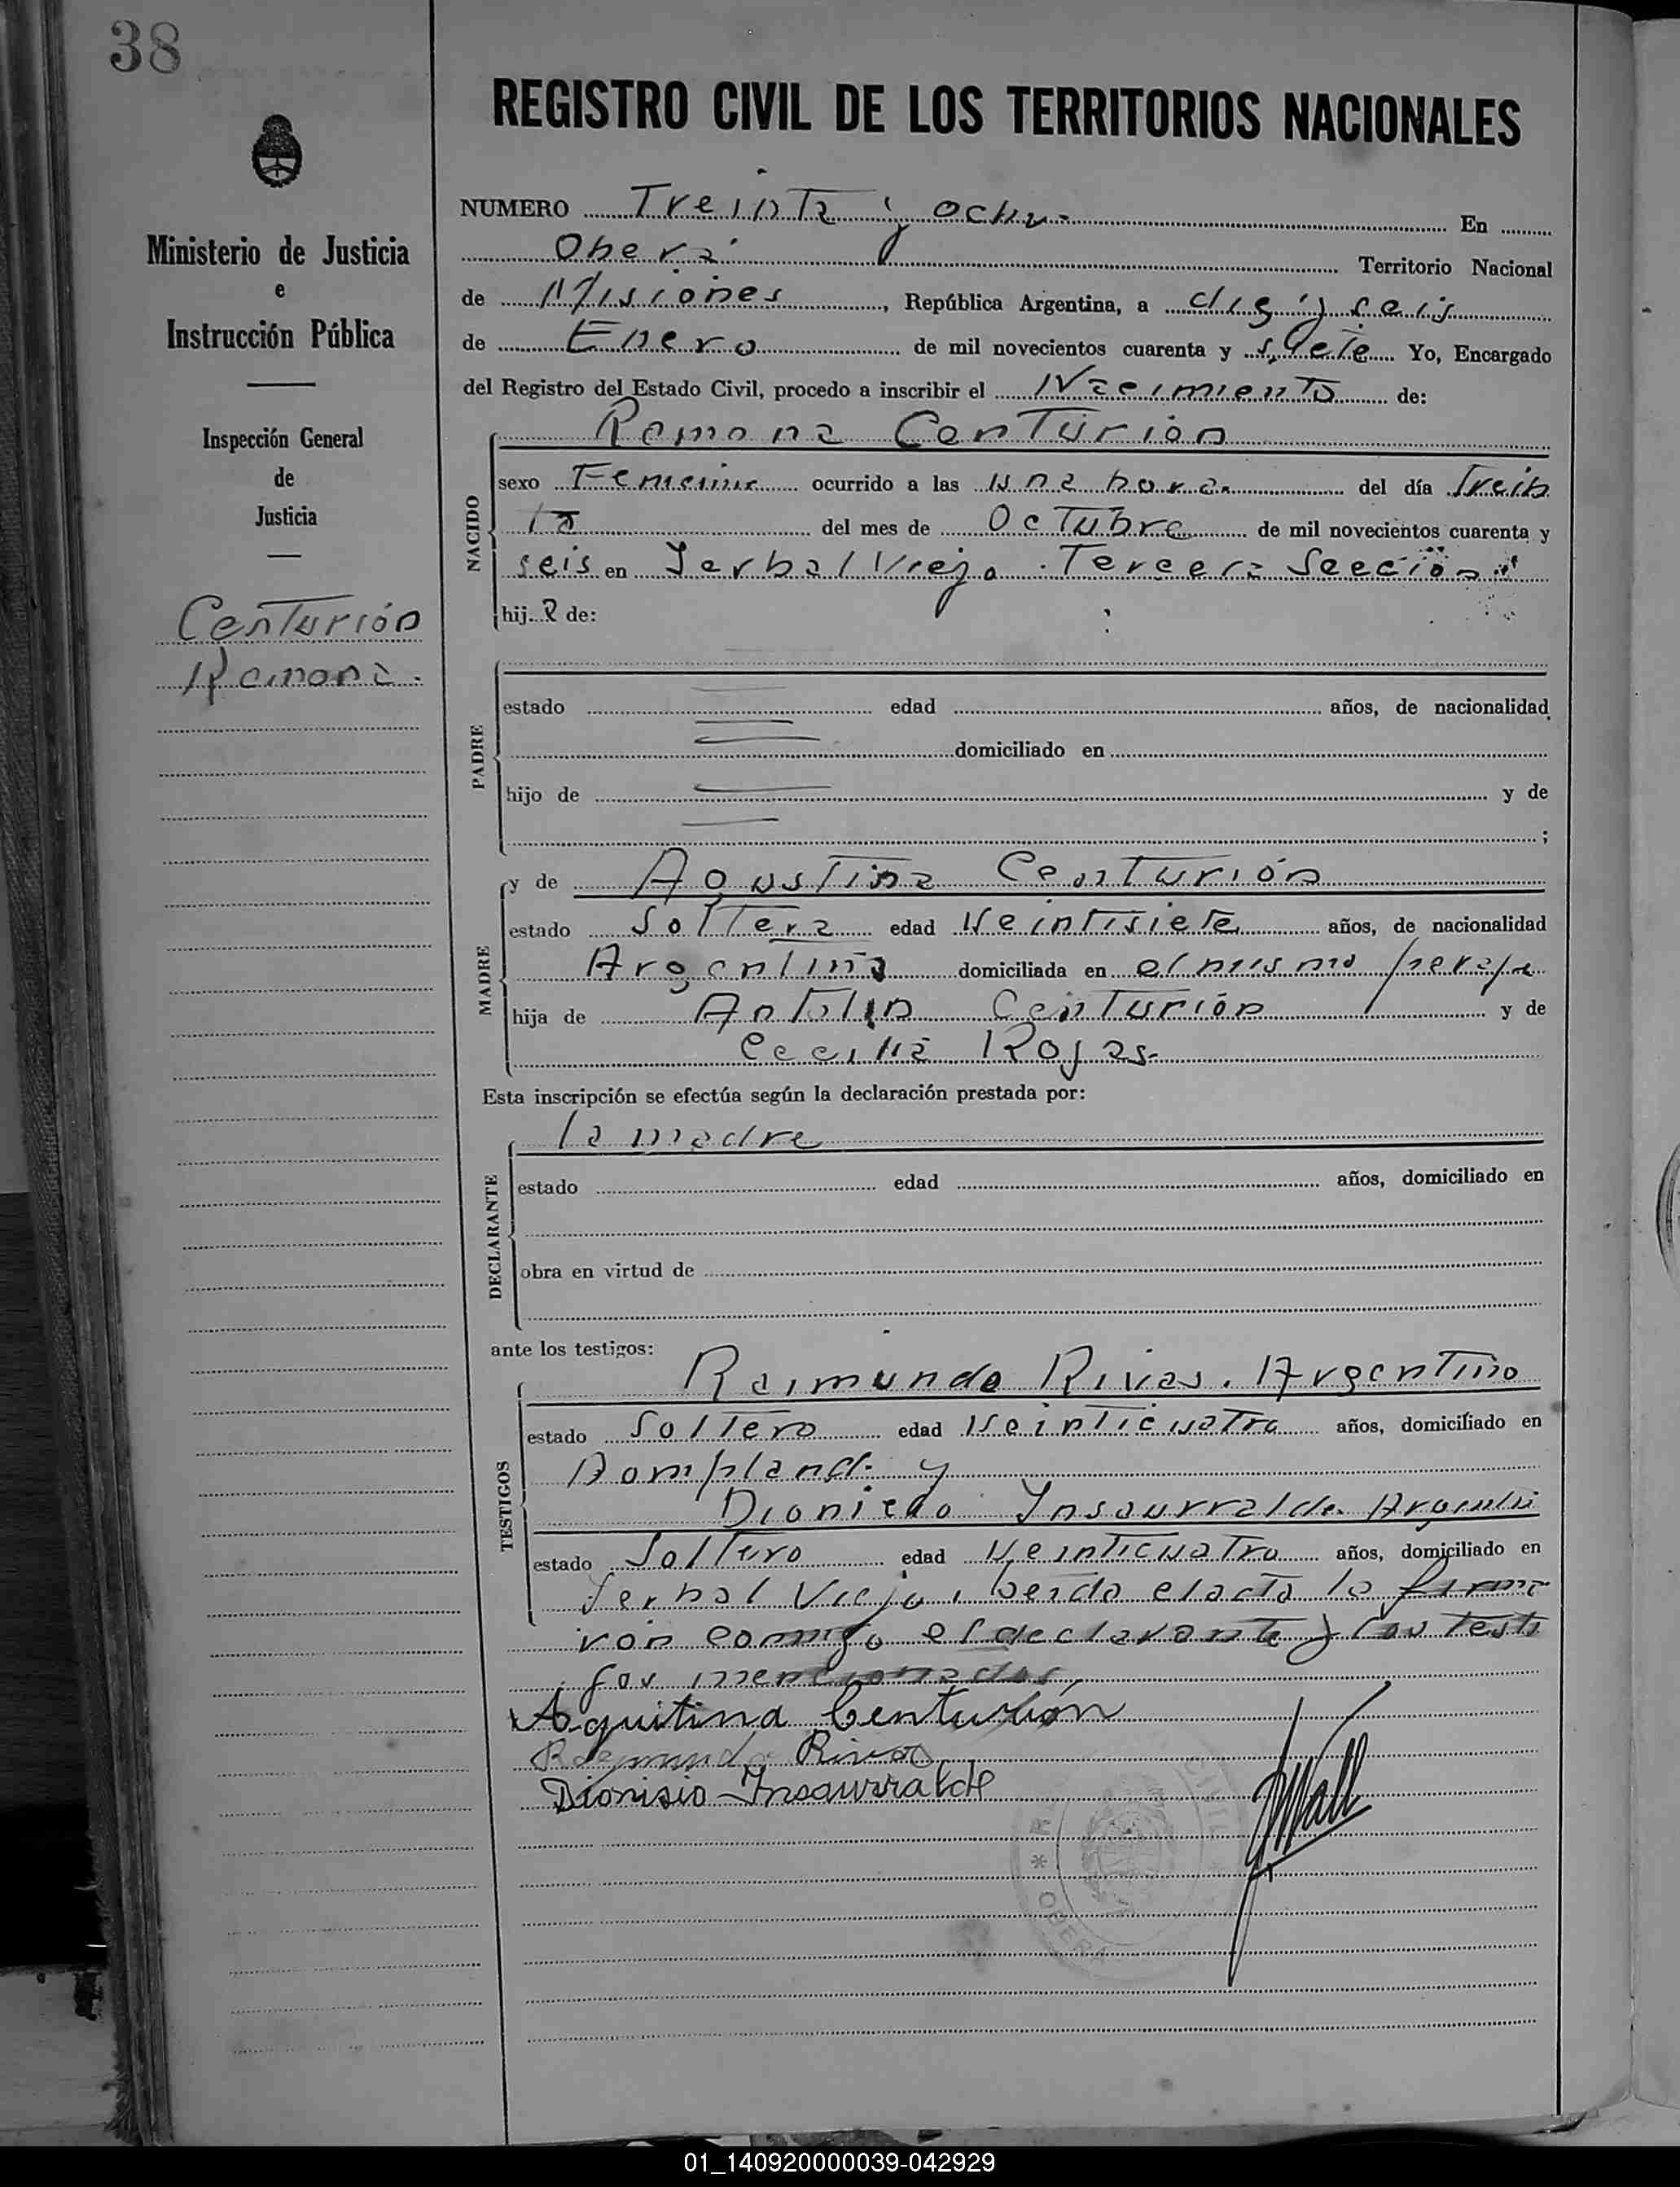 38
REGISTRO CIVIL DE LOS TERRITORIOS NACIONALES
Ministerio de Justicia
e
Instrucción Pública
Inspección General
de
Justicia
Centurión
Ramona.
NUMERO Treinta y ocho- En
Oberá Territorio Nacional
de Misiones, República Argentina, a diez y seis
de Enero de mil novecientos cuarenta y siete Yo, Encargado
del Registro del Estado Civil, procedo a inscribir el Nacimiento de:
NACIDO
Ramona Centurión
sexo Femenino ocurrido a las una hora del día Trein
ta del mes de Octubre de mil novecientos cuarenta y
seis en Yerbal Viejo. Tercera Sección
hija de:
PADRE
estado edad años, de nacionalidad
domiciliado en
hijo de y de
;
MADRE
y de Agustina Centurión
estado Soltera edad Veintisiete años, de nacionalidad
Argentina domiciliada en el mismo paraje
hija de Antolin Centurión y de
Cecilia Rojas-
Esta inscripción se efectúa según la declaración prestada por:
DECLARANTE
la madre
estado edad años, domiciliado en
obra en virtud de
ante los testigos:
TESTIGOS
Raimundo Rivas. Argentino
estado Soltero edad Veinticuatro años, domiciliado en
Bompland. y
Dionicio Insaurralde.
estado Soltero edad Veinticuatro años, domiciliado en
Yerbal Viejo, Leida el acta la firma
ron conmigo el declarante y los testi
gos mencionados
Agustina Centurión
Raimundo Rivas
Dionisio Insaurralde
CIVIL
OBERA
01_140920000039-042929